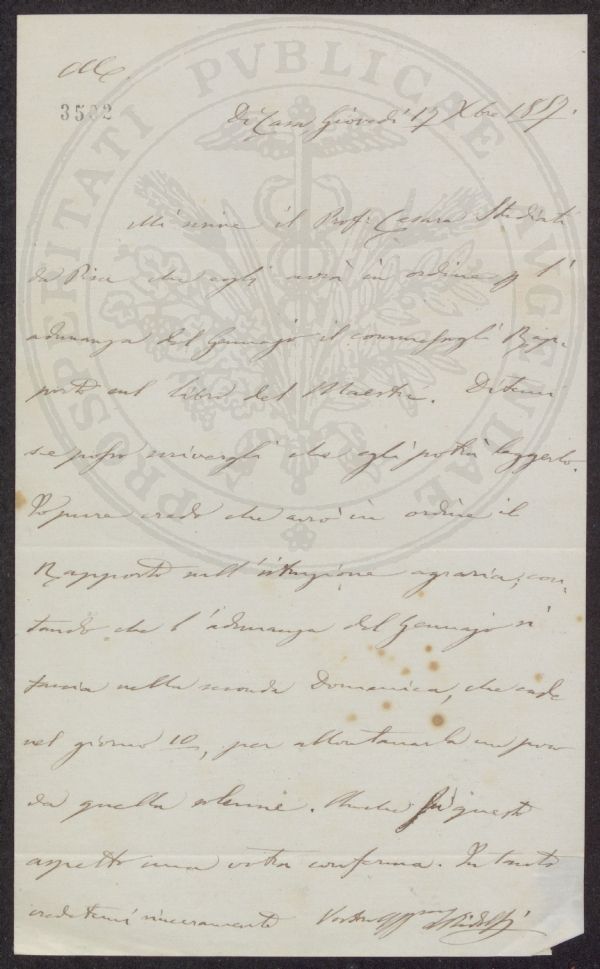 3502
PROSPERITATI PVBLICAE AVGENDAE
Di Casa Giovedì 17 Xbre 1857.
Mi scrive il Prof. Cesare Studiati
da Pisa che egli avrà in ordine p l'
adunanza del Gennajo il commessogli Rap-
porto sul libro del Maestri. Ditemi
se posso scrivergli che egli potrà leggerlo.
Io pure credo che avrò in ordine il
Rapporto sull'istruzione agraria, con-
tando che l'adunanza del Gennajo si
faccia nella seconda Domenica, che cade
nel giorno 10, per allontanarla un poco
da quella solenne. Anche su questo
aspetto una vostra conferma. Intanto
credetemi sinceramente Vostro Ridolfi